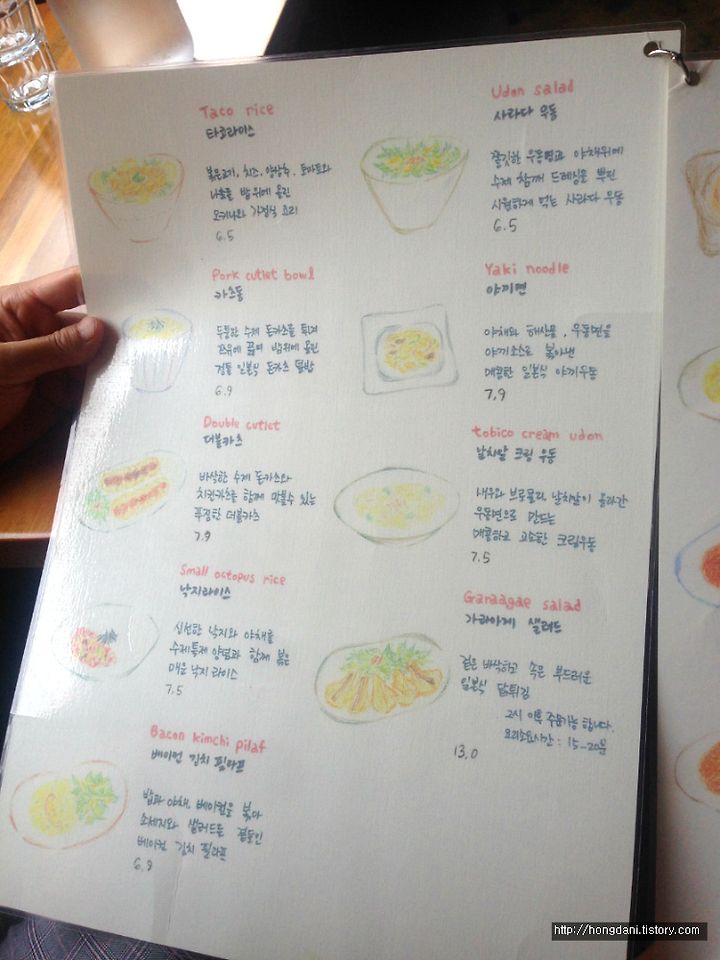 Taco rice
타코라이스
볶은고기, 치즈, 양상추, 토마토와
나쵸를 밥위에 올린
오키나와 가정식 요리
6.5
Pork cutlet bowl
카츠동
두툼한 수제 돈카츠를 튀겨
밥위에 올린
정통 일본식 돈카츠 덮밥
6.9
Double cutlet
더블카츠
바삭한 수제 돈카츠와
치킨카츠를 함께 맛볼수 있는
푸짐한 더블카츠
7.9
Small octopus rice
낙지라이스
신선한 낙지와 야채를
수제특제 양념과 함께 볶은
매운 낙지 라이스
7.5
Bacon kimchi pilaf
베이컨 김치 필라프
밥과 야채, 베이컨을 볶아
소세지와 샐러드를 곁들인
베이컨 김치 필라프
6.9
Udon salad
사라다 우동
쫄깃한 우동면과 야채위에
수제 참깨 드레싱을 뿌린
시원하게 먹는 사라다 우동
6.5
Yaki noodle
야끼면
야채와 해산물, 우동면을
야끼소스로 볶아낸
매콤한 일본식 야끼우동
7.9
tobico cream udon
날치알 크림 우동
새우와 브로콜리, 날치알이 올라간
우동면으로 만드는
매콤하고 고소한 크림우동
7.5
Garaagae salad
가라아게 샐러드
겉은 바삭하고 속은 부드러운
일본식 닭튀김
2시 이후 주문가능 합니다.
요리소요시간 : 15-20분
13.0
http://hongdani.tistory.com